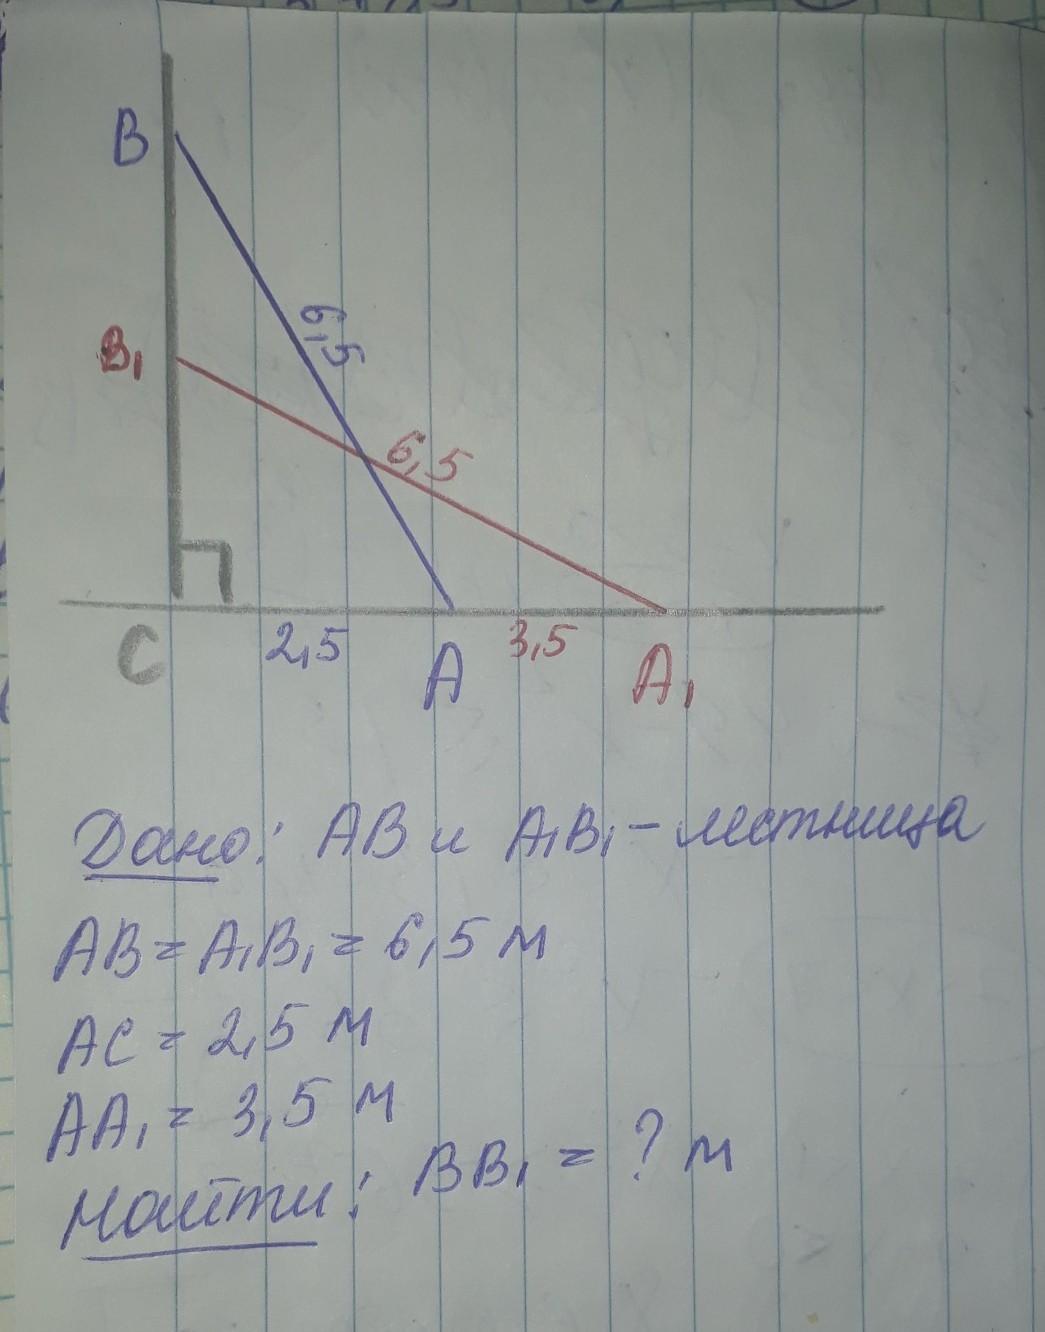 B
6,5
B₁
6,5
C
2,5
A
3,5
A₁
Дано: AB и A₁B₁ - лестница
AB = A₁B₁ = 6,5 м
AC = 2,5 м
AA₁ = 3,5 м
Найти: BB₁ = ? м